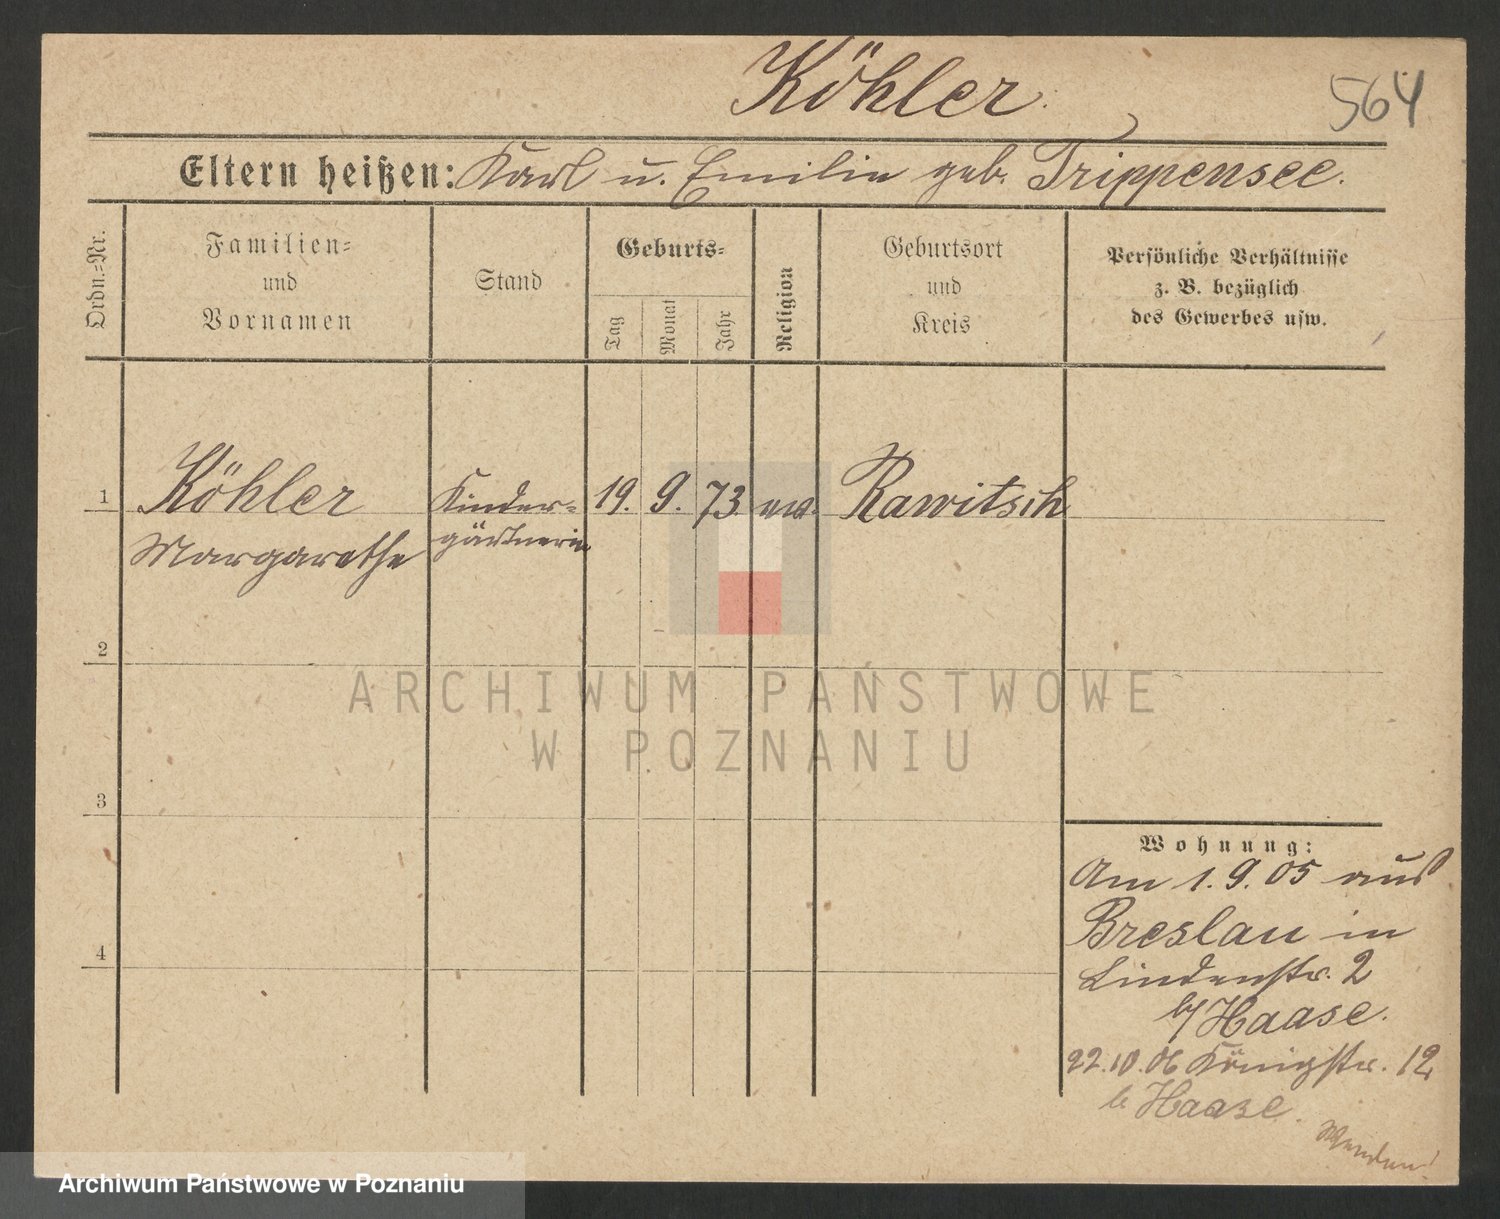 Köhler.
564
Eltern heißen: Karl u. Emilie geb. Trippensee.
Ordn.-Nr.
Familien-
und
Vornamen
Stand
Geburts-
Tag
Monat
Jahr
Religion
Geburtsort
und
Kreis
Persönliche Verhältnisse
z. B. bezüglich
des Gewerbes usw.
1 Köhler Kinder- 19. 9. 73 ev. Rawitsch
Margarethe gärtnerin
2
3
4
Wohnung:
Am 1.9.05 aus
Breslau in
Lindenstr. 2
b/ Haase.
22.10.06 Königstr. 12
b Haase.
Wenden!
ARCHIWUM PAŃSTWOWE
W POZNANIU
Archiwum Państwowe w Poznaniu